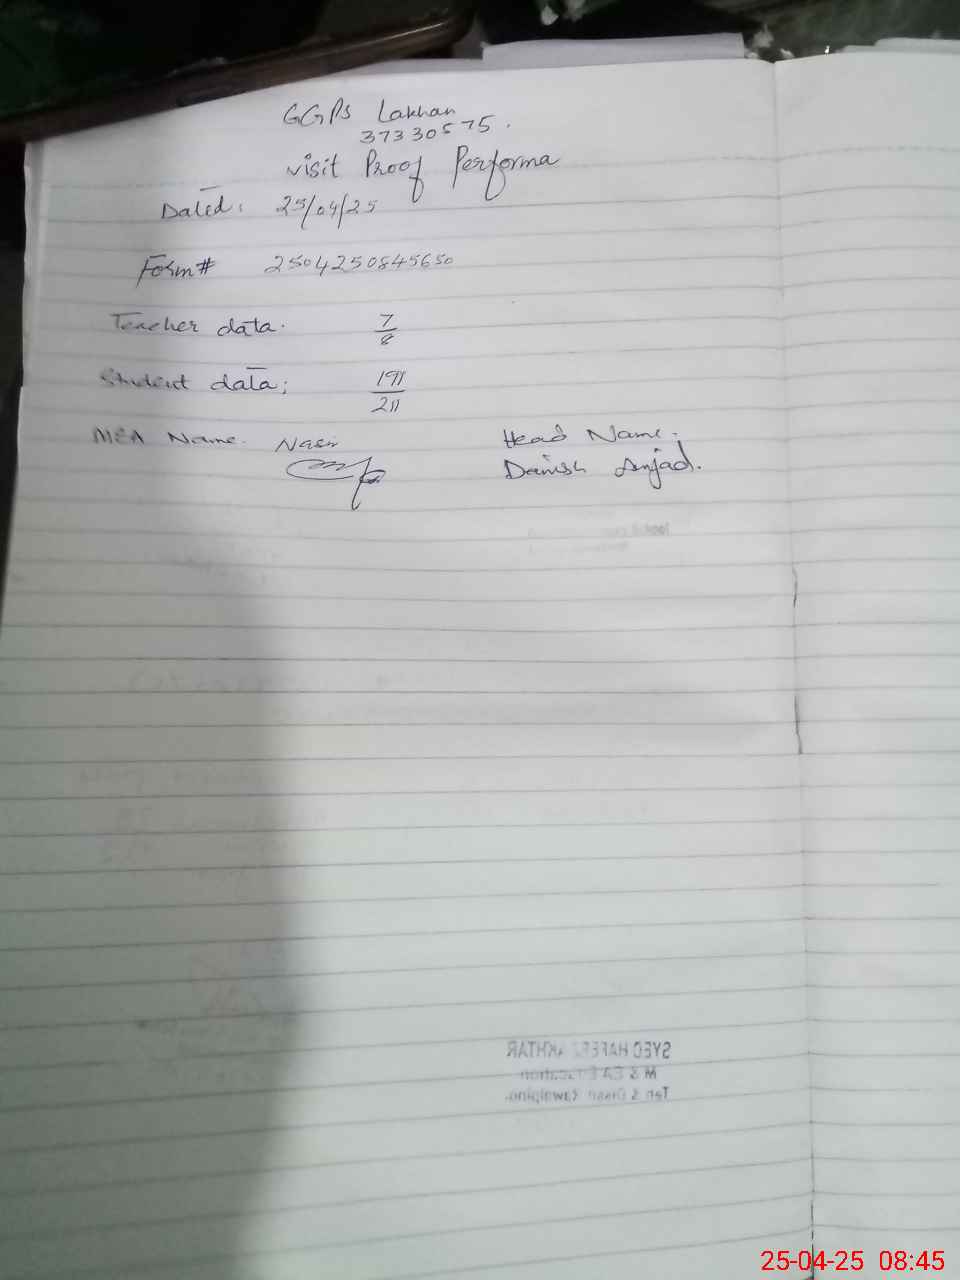 GGPS Lakhan
37330575.
Visit Proof Performa
Dated: 25/04/25
Form# 2504250845650
Teacher data. 7/8
Student data; 191/211
MEA Name. Nasir
Head Name.
Danish Amjad.
SYED HAFEEZ AKHTAR
M & EA Education
Teh & Distt Rawalpindi
25-04-25 08:45